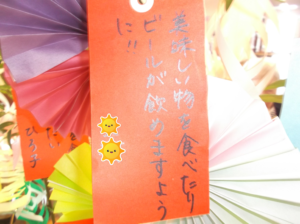 美味しい物を食べたり
ビールが飲めますよう
に!!